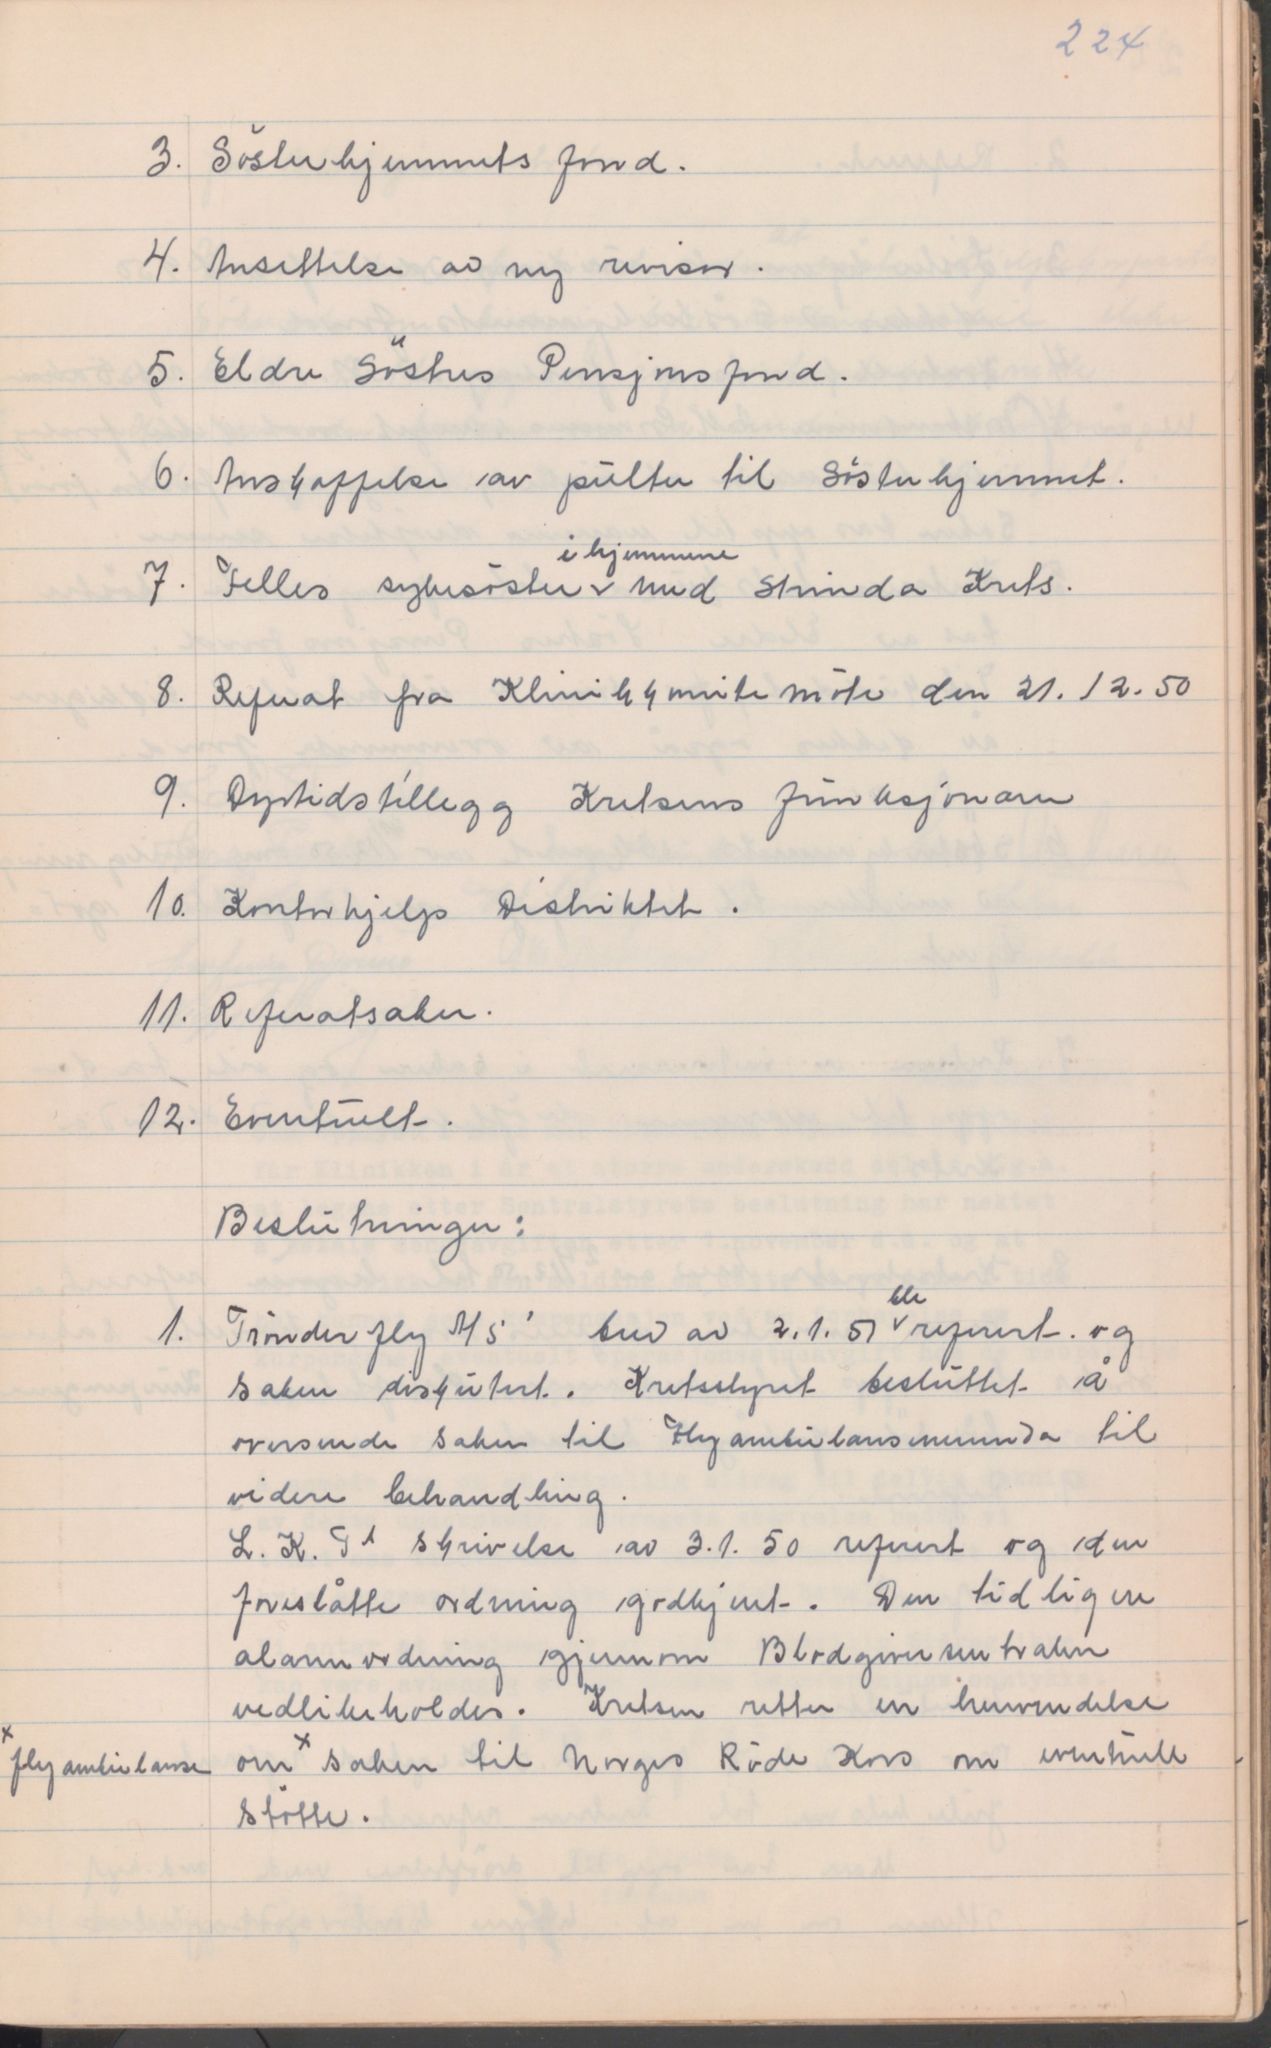 224
3. Søsterhjemmets fond.
4. Ansettelse av ny revisor.
5. Eldre Søstres Pensjonsfond.
6. Anskaffelse av pulter til Søsterhjemmet.
i hjemmene
7. Felles sykesøster v med Strinda Krets.
8. Referat fra Klinikkomitemøte den 21.12.50
9. Dyrtidstillegg Kretsens funksjonærer
10. Kontorhjelp Distriktet.
11. Referatsaker.
12. Eventuelt.
Beslutninger:
ble
1. Trønderfly A/S' brev av 2.1.51 v referert. og
saken diskutert. Kretsstyret besluttet å
oversende saken til Flyambulansenemnda til
videre behandling.
L.K.Ts skrivelse av 3.1.50 referert og den
foreslåtte ordning godkjent. Den tidligere
alarmordning gjennom Blodgiversentralen
vedlikeholdes. Kretsen retter en henvendelse
x
flyambulanse om x saken til Norges Røde Kors om eventuell
støtte.